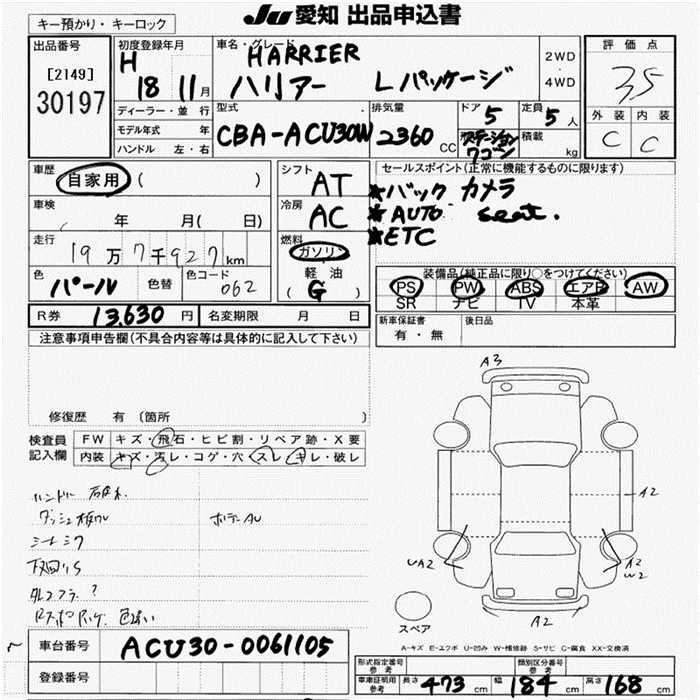 キー預かり・キーロック
Ju 愛知 出品申込書
出品番号
[2149]
30197
初度登録年月
H 18 11月
ディーラー・並行
モデル年式 年
ハンドル 左・右
車名・グレード
HARRIER
ハリアー Lパッケージ
2WD
・
4WD
型式
CBA-ACU30W
排気量
2360 cc
ドア
5
定員
5人
ステーション
ワゴン
積載
kg
評価点
3.5
外装 内装
C C
車歴
自家用 ( )
車検
年 月( 日)
走行
19万7千927km
色
パール
色替
色コード
062
シフト
AT
冷房
AC
燃料
ガソリン
軽油
( G )
セールスポイント(正常に機能するものに限ります)
★バックカメラ
★AUTO seat.
★ETC
装備品(純正品に限り○をつけてください)
PS PW ABS エアB AW
SR ナビ TV 本革
R券 13,630 円
名変期限 月 日
新車保証書
有・無
後日品
注意事項申告欄(不具合内容等は具体的に記入して下さい)
修復歴 有(箇所 )
検査員
記入欄
FW キズ・飛石・ヒビ割・リペア跡・X要
内装 キズ・汚レ・コゲ・穴・スレ・キレ・破レ
ハンドル
ダッシュ
シートシワ
下回りS
ボデーAU
色違い
A3
A2
UA2
A2
W2
A2
スペア
A-キズ E-エクボ U-凹み W-補修跡 S-サビ C-腐食 XX-交換済
車台番号 ACU30-0061105
登録番号
形式指定番号
参考
類別区分番号
参考
車庫証明用
参考
長さ 473 cm 幅 184 cm 高さ 168 cm